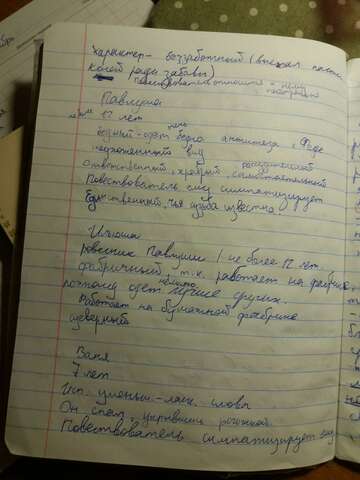 Характер - беззаботный (выехал пасти
коней ради забавы)
Павлуша
12 лет
бедный - одет бедно антитеза Феде
ответственный, храбрый, самостоятельный
Повествователь ему симпатизирует
Единственный, чья судьба известна
Илюша
ровесник Павлуши / не более 12 лет
фабричный, т.к. работает на фабрике,
поэтому одет немного лучше других.
Работает на бумажной фабрике
суеверный
Ваня
7 лет
Исп. уменьш-ласк. слова
Он спал, укрывшись рогожей
Повествователь симпатизирует ему